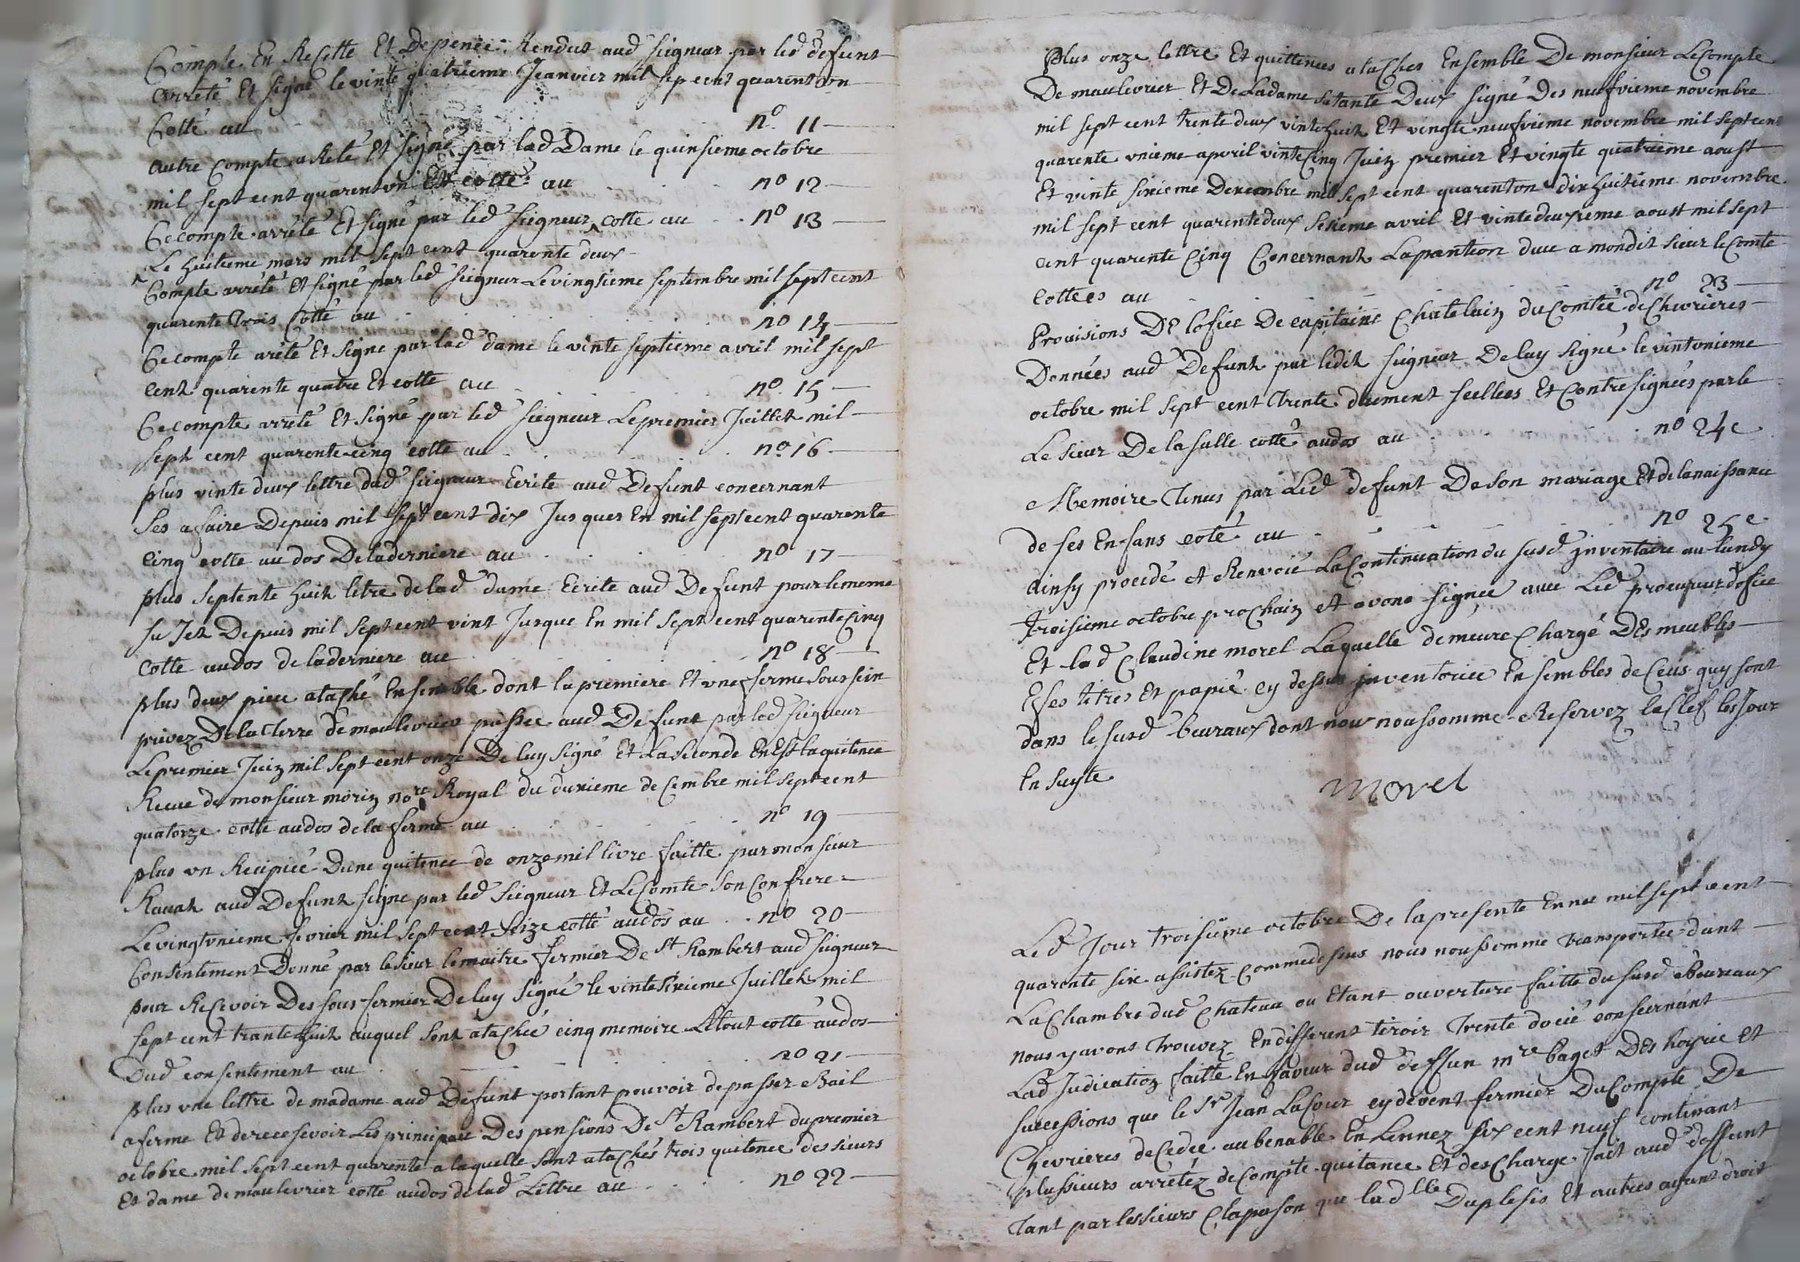 Compte En Recette Et Depence Rendut aud seigneur par led deffunt
arrété Et signé le vinte quatrieme Jeanvier mil sept cent quarenton
Cotté au n° 11
autre Compte arêté Et signé par lad Dame le quinsieme octobre
mil sept cent quarenton Et cotté au n° 12
Ce compte arrélé Et signé par led seigneur ^ cotté au n° 13
^ Le huitieme mars mil sept cent quarente deux
Compte arrété Et signé par led seigneur Le vingsieme septembre mil sept cent
quarente Trois Cotté au n° 14
Ce compte arêté Et signé par lad dame le vinte septieme avril mil sept
cent quarente quatre Et cotté au n° 15
Ce compte arrété Et signé par led seigneur Le premier Juillet mil
sept cent quarente cinq cotté au n° 16
plus vinte deux lettre dud seigneur Ecrite aud Defunt concernant
ses afaire Depuis mil sept cent dix Jusques En mil sept cent quarente
cinq cotte au dos De laderniere au n° 17
plus septente huit letre de lad dame Ecrite aud Defunt pour lememe
su Jet Depuis mil sept cent vint Jusque En mil sept cent quarente Cinq
cotte audos de laderniere au n° 18
plus deux piece atachè Ensemble dont la premiere Et vne ferme sous sein
privez De la Terre de maulevrier passee aud Defunt par led seigneur
Le premier Juin mil sept cent onze De luy signé Et La seconde En Est la quitence
Receue de monsieur morin nore Royal du duxieme decembre mil sept cent
quatorze cotté audos de la ferme au n° 19
plus vn Recipicé Dune quitence de onze mil livre faitte par monsieur
Ravat aud Defunt signe par led seigneur Et Le Comte son Confrere
Le vingtunieme fevrier mil sept cent seize cotté audos au n° 20
Consentement Donné par le sieur lemaitre fermier De St Rambert aud seigneur
pour Resevoir Des sous fermier De luy signé le vinte sixieme Juillet mil
sept cent trante huit auquel sont atachée cinq memoire Letout cotté audos
Dud consentement au n° 21
plus vne lettre de madame aud Defunt portant pouvoir de passer Bail
a ferme Et de recesevoir Les principau Des pensions De St Rambert du premier
octobre mil sept cent quarente a laquelle sont atachés trois quitence des sieurs
Et dame de maulevrier cotté audos de lad Lettre au n° 22
Plus onze lettre Et quittences atachées Ensemble De monsieur Le Compte
De maulevrier Et De Ladame sa tante Deux signé Des nufvieme novembre
mil sept cent trente deux vinte huit Et vingte neufvieme novembre mil sept cent
quarente vnieme apvril vinte Cinq Juin premier Et vingte quatrieme aoust
Et vinte sixieme Decembre mil sept cent quarenton dix huitieme novembre
mil sept cent quarente deux sixieme avril Et vinte deuxieme aoust mil sept
cent quarente Cinq Concernant La pantion due a mondit sieur le Comte
cottées au n° 23
Provisions De lofice De capitaine Chatelain du Comtée de Chevrieres
Données aud Defunt par ledit seigneur De luy signé le vintvnieme
octobre mil sept cent Trente duement scellees Et Contresignées par le
Le sieur De la salle cotté audos au n° 24e
Memoire Tenus par Led defunt De son mariage Et de la naissance
de ses Enfans coté au n° 25e
ainsy procedé et Renvoié La Continuation du susd jnventaire au lundy
troisieme octobre prochain et avons signée avec Led procureur doffice
Et lad Claudine morel Laquelle demeure Chargé Des meubles
Esses titres Et papié cy dessus jnventoriée Ensembles de Ceus quy sont
dans le susd beuraux dont nous nous somme Reservez la Clef les Jour
En suyte
Morel
Led Jour troisieme octobre De la presente Ennee mil sept cent
quarente six assistez comme dessus nous nous somme transportée dant
La Chambre dud Chateau ou Etant ouverture faitte du susd Beureaux
nous y avons trouvez En different tiroir Trente docié conscernant
Lad Judication faitte En faveur dud deffun mre baget Des hoyrie Et
successions que le Sr Jean Lafour cy devent fermier Du Compte De
Chevrieres de Cedée au benable En Lennez six cent neuf contenant
plussieurs arrétez de Compte quitance Et des Charge fait aud deffunt
Tant par les sieurs Clapason que lad lle Duplesis Et autres ayant droit